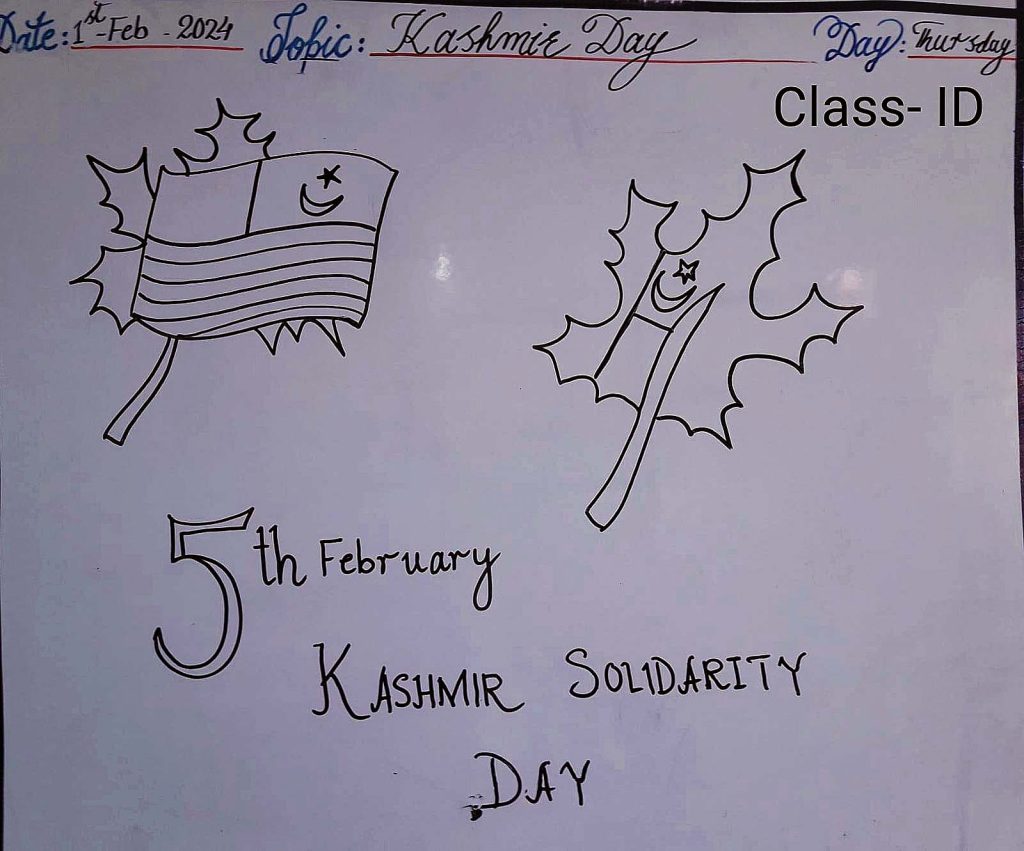 Date: 1st-Feb - 2024 Topic: Kashmir Day Day: Thursday
Class- ID
5th February
KASHMIR SOLIDARITY
DAY